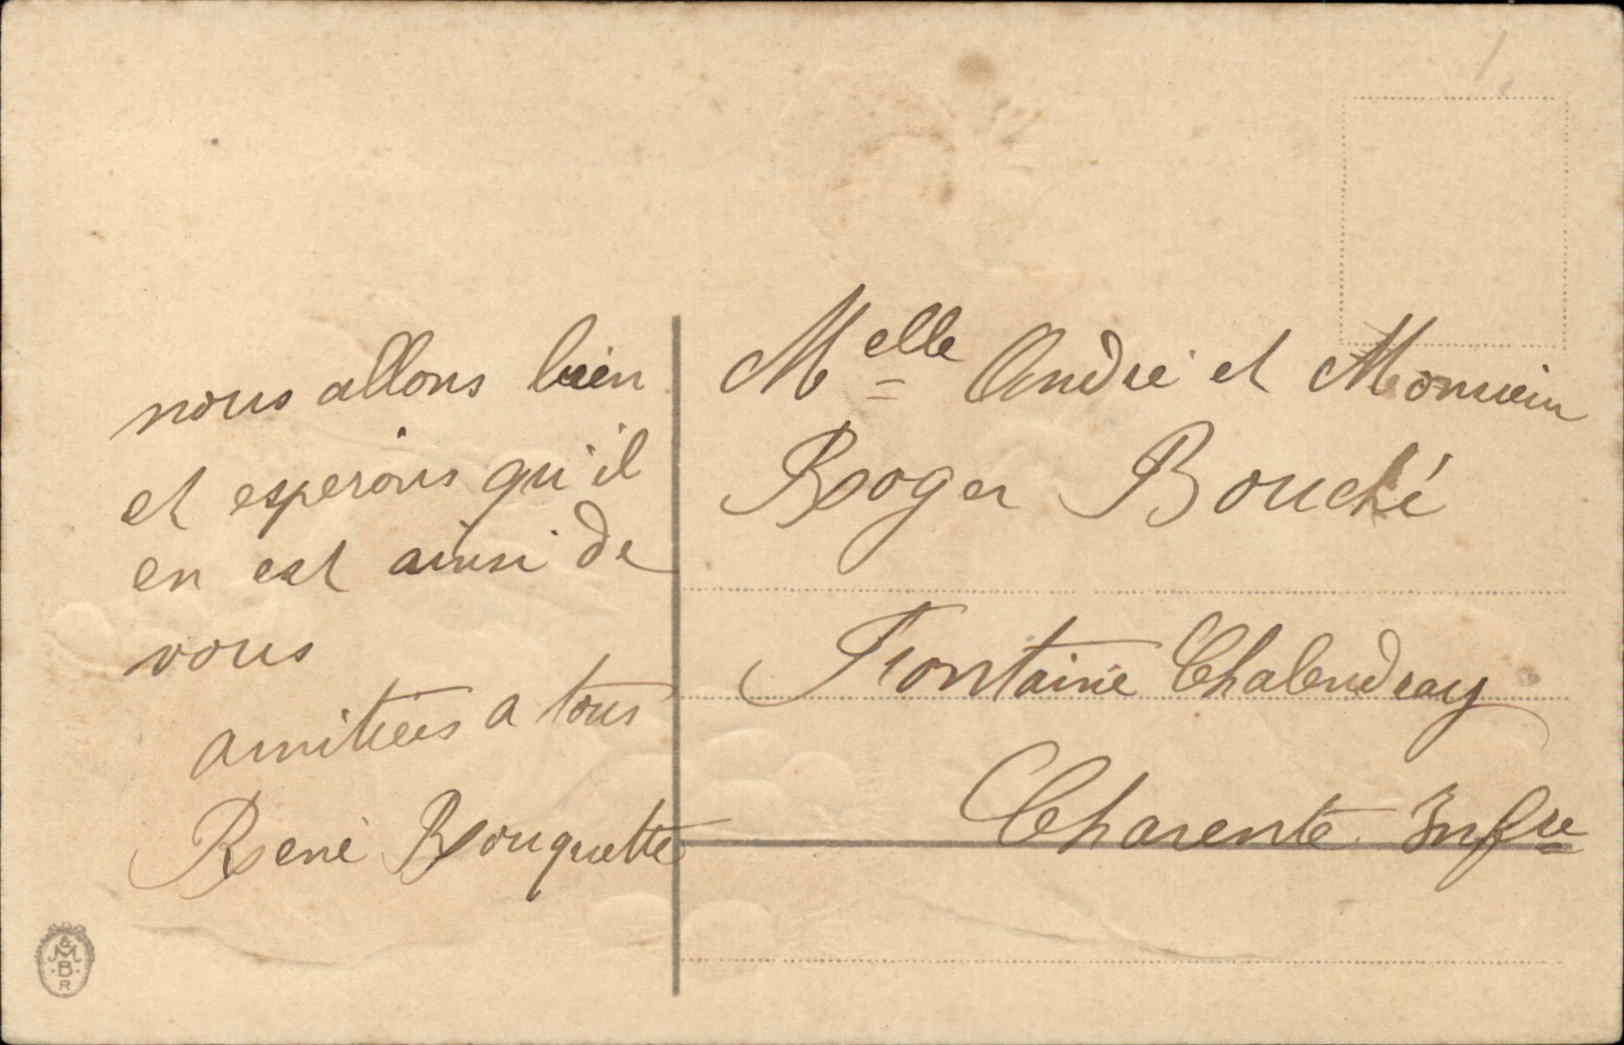 nous allons bien
et esperons qu'il
en est ainsi de
vous
amitiées a tous
René Rouquette
M & B R
Melle André et Monsieur
Roger Bouché
Fontaine Chalendray
Charente Infre